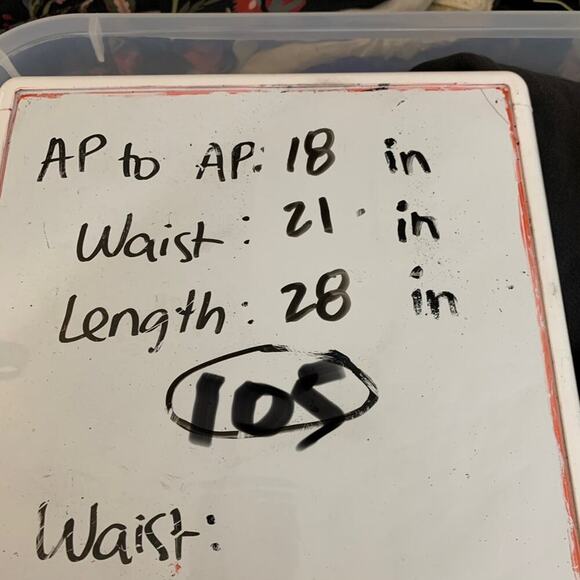 AP to AP: 18 in
Waist: 21 in
Length: 28 in
105
Waist: